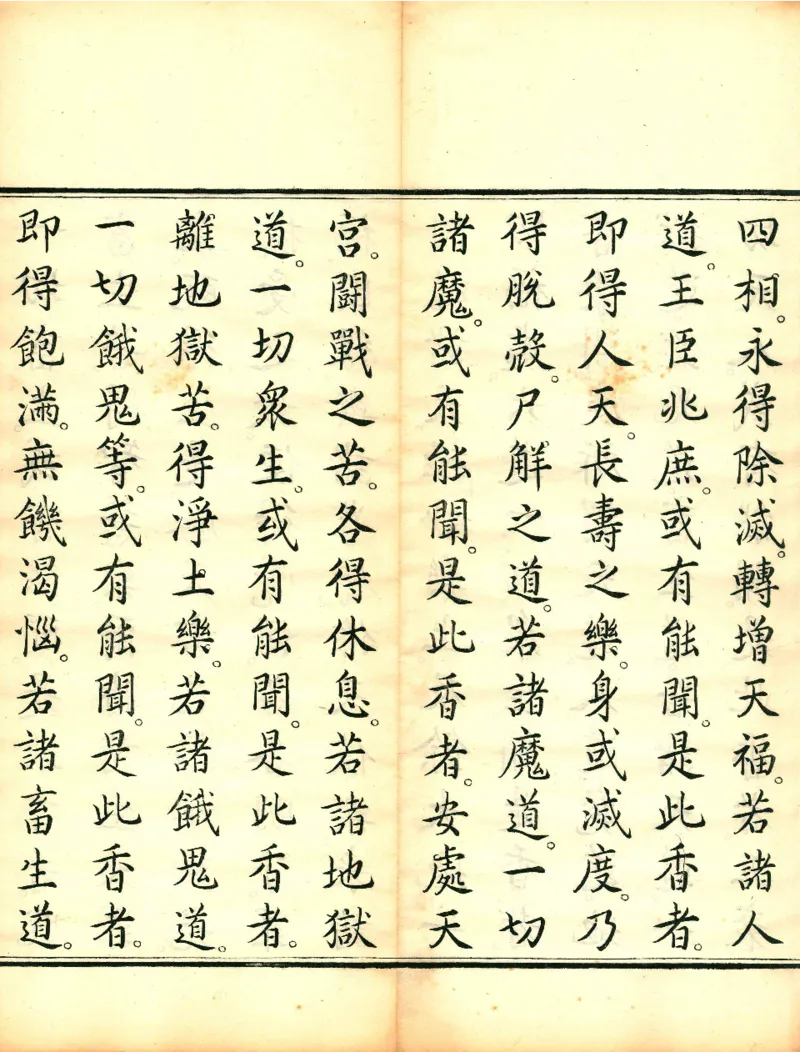 四相。永得除滅。轉增天福。若諸人
道。王臣兆庶。或有能聞。是此香者。
即得人天。長壽之樂。身或滅度。乃
得脫殼。尸解之道。若諸魔道。一切
諸魔。或有能聞。是此香者。安處天
宮。鬪戰之苦。各得休息。若諸地獄
道。一切眾生。或有能聞。是此香者。
離地獄苦。得淨土樂。若諸餓鬼道。
一切餓鬼等。或有能聞。是此香者。
即得飽滿。無饑渴惱。若諸畜生道。